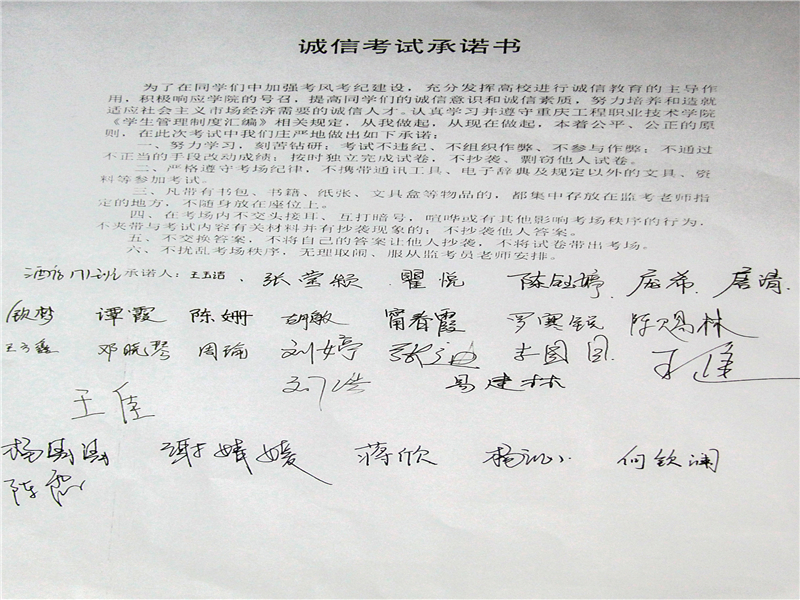 诚信考试承诺书
为了在同学们中加强考风考纪建设，充分发挥高校进行诚信教育的主导作
用，积极响应学院的号召，提高同学们的诚信意识和诚信素质，努力培养和造就
适应社会主义市场经济需要的诚信人才。认真学习并遵守重庆工程职业技术学院
《学生管理制度汇编》相关规定，从我做起，从现在做起，本着公平、公正的原
则，在此次考试中我们庄严地做出如下承诺：
一、努力学习，刻苦钻研；考试不违纪、不组织作弊、不参与作弊；不通过
不正当的手段改动成绩；按时独立完成试卷，不抄袭、剽窃他人试卷。
二、严格遵守考场纪律，不携带通讯工具、电子辞典及规定以外的文具、资
料等参加考试。
三、凡带有书包、书籍、纸张、文具盒等物品的，都集中存放在监考老师指
定的地方，不随身放在座位上。
四、在考场内不交头接耳、互打暗号，喧哗或有其他影响考场秩序的行为，
不夹带与考试内容有关材料并有抄袭现象的；不抄袭他人答案。
五、不交换答案，不将自己的答案让他人抄袭，不将试卷带出考场。
六、不扰乱考场秩序，无理取闹、服从监考员老师安排。
承诺人：王玉洁 张莹颖 瞿悦 庞希 唐清
谭霞 陈姗 胡敏 甯春霞 罗寒锐 陈赐林
邓晓琴 周瑜 刘婷 张迪
刘洪 易建林
王佳
谢婧媛 蒋欣 何钦澜